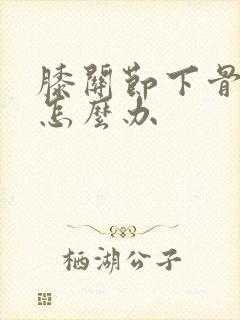 膝關節下骨
怎麼办
栖湖公子